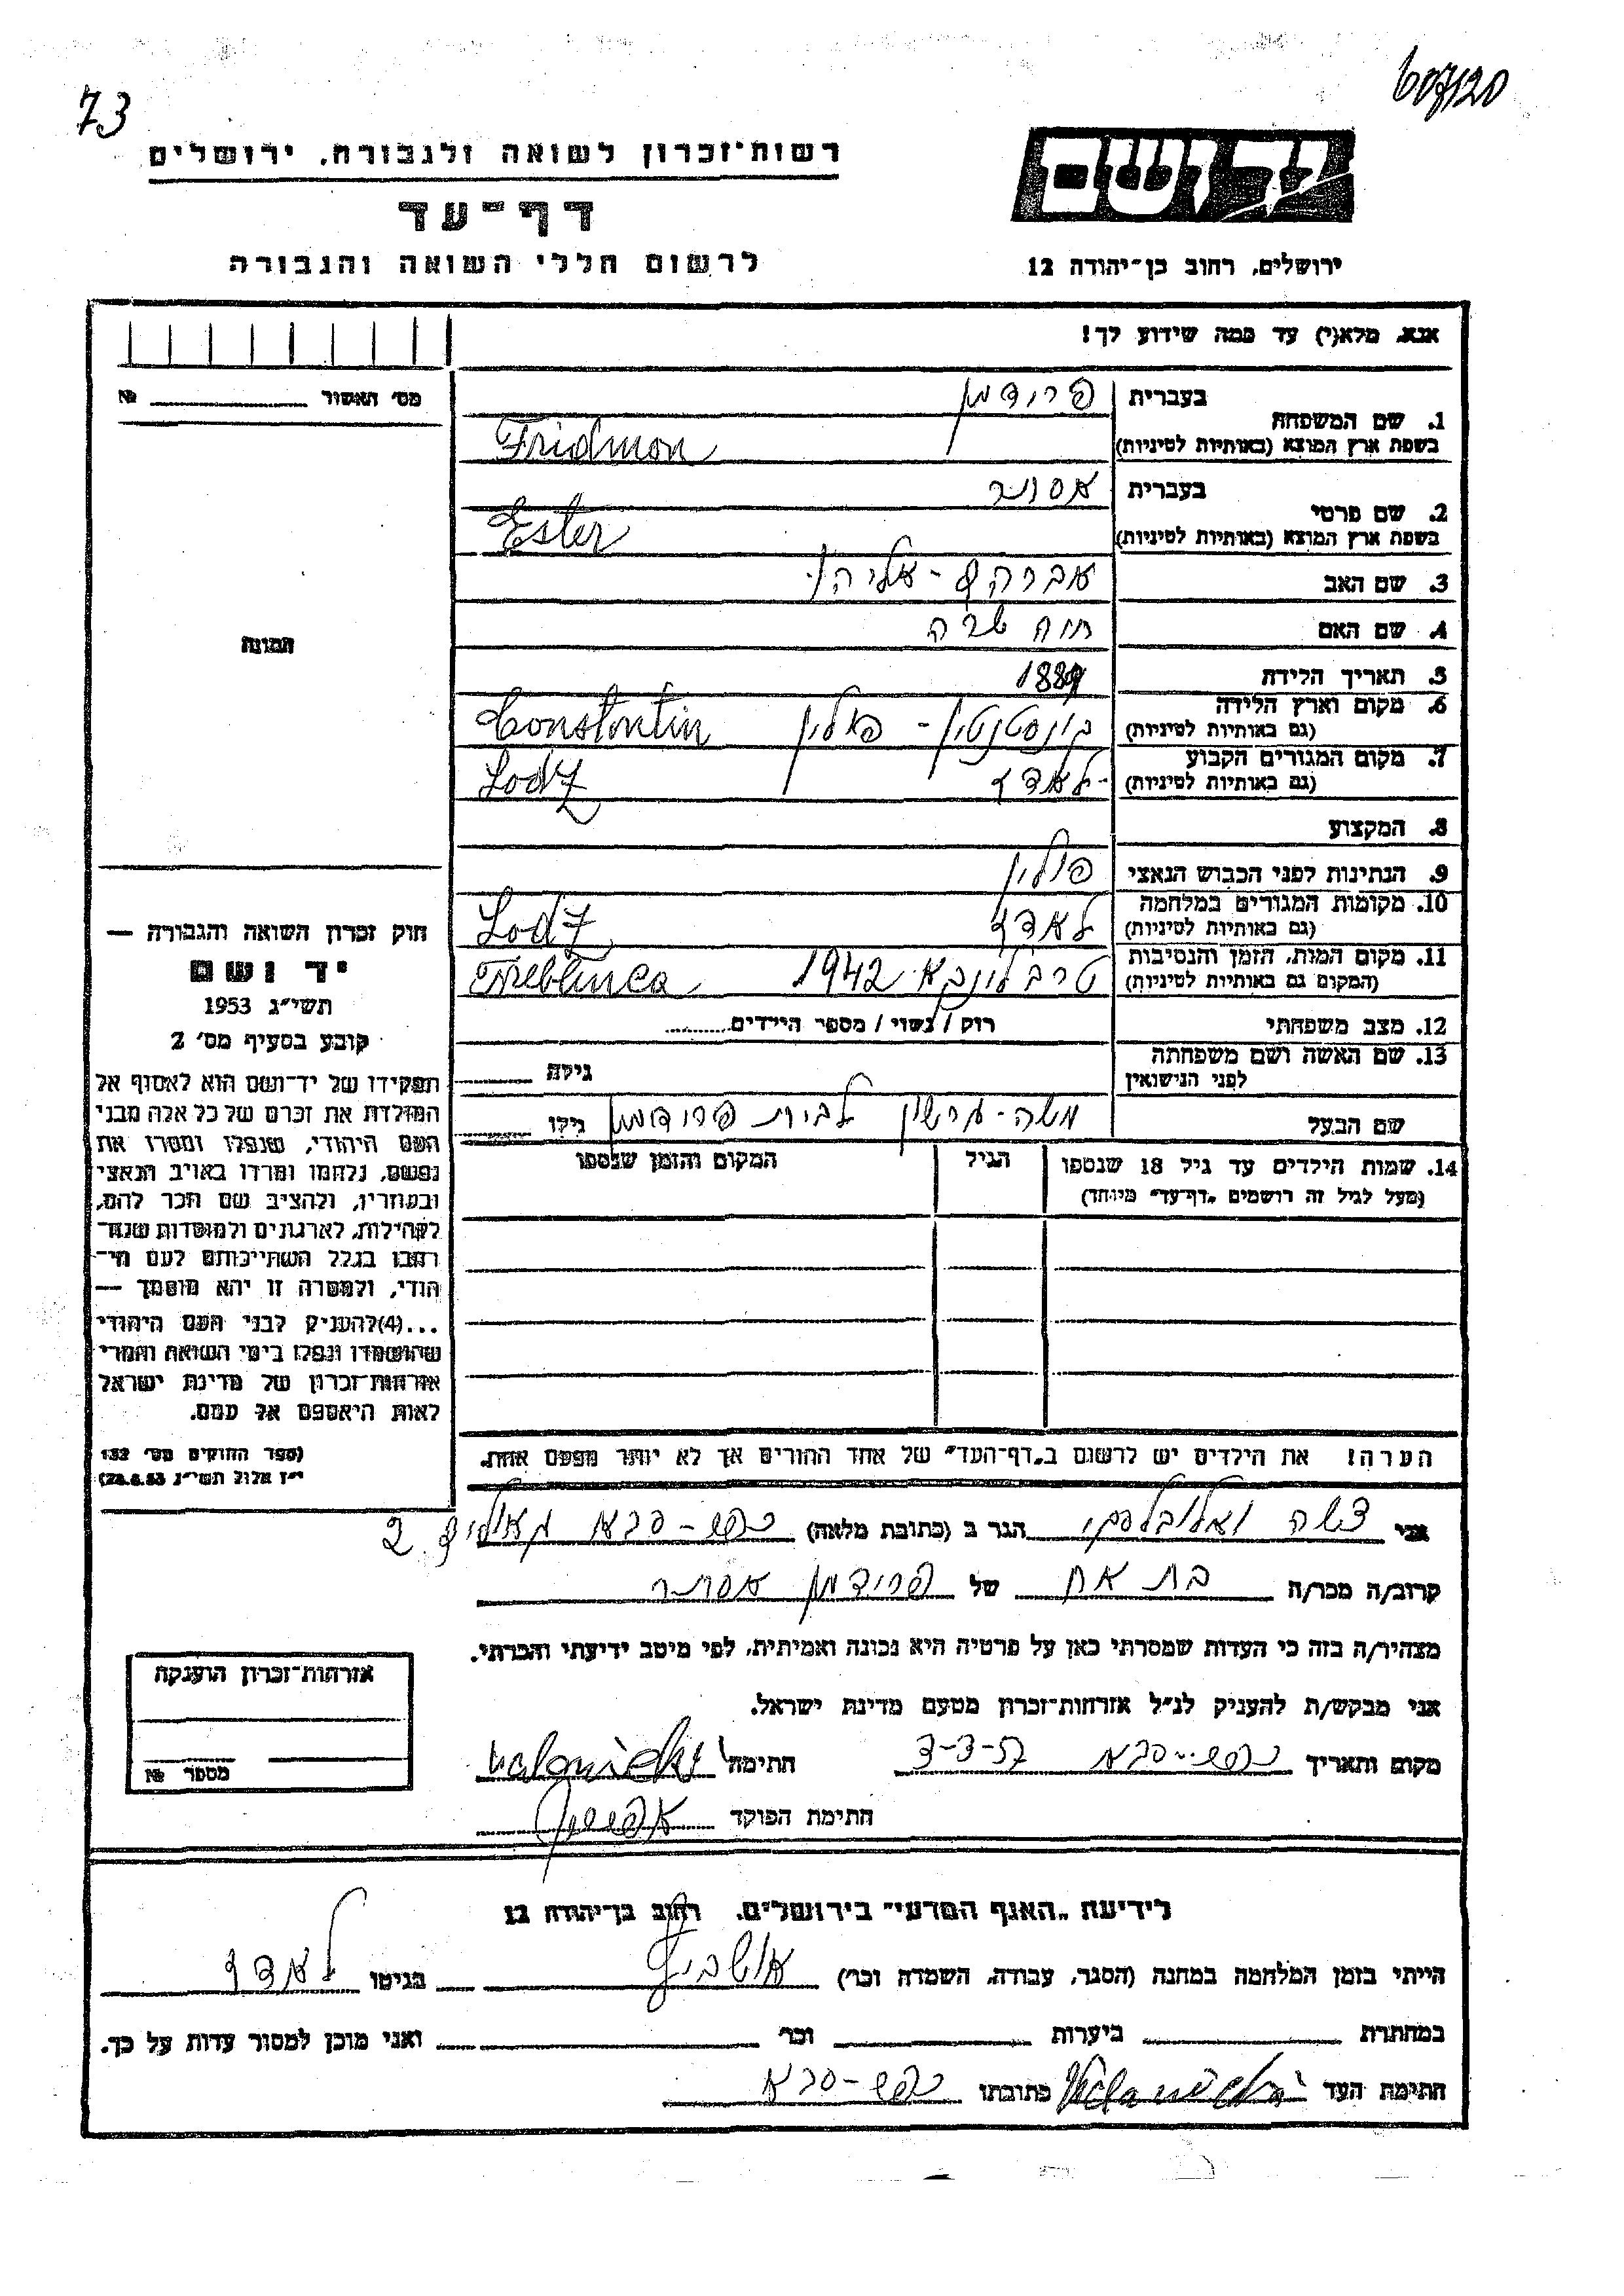 73
607/20
רשות־זכרון לשואה ולגבורה, ירושלים
יד ושם
דף־עד
לרשום חללי השואה והגבורה
ירושלים, רחוב בן־יהודה 12
אנא, מלא(י) עד כמה שידוע לך!
מס׳ האשור № 
1. שם המשפחה
בעברית פרידמן
בשפת ארץ המוצא (באותיות לטיניות) Fridman
2. שם פרטי
בעברית אסתר
בשפת ארץ המוצא (באותיות לטיניות) Ester
3. שם האב אברהם - אליהו
4. שם האם חוה שרה
5. תאריך הלידה
6. מקום וארץ הלידה
(גם באותיות לטיניות) קונסטנטין - פולין Constontin
7. מקום המגורים הקבוע
(גם באותיות לטיניות) לאדז Lodz
8. המקצוע
9. הנתינות לפני הכבוש הנאצי פולין
10. מקומות המגורים במלחמה
(גם באותיות לטיניות) לאדז Lodz
11. מקום המות, הזמן והנסיבות
(המקום גם באותיות לטיניות) טרבלינקא 1942 Treblinca
12. מצב משפחתי רוק / נשוי / מספר הילדים
13. שם האשה ושם משפחתה
לפני הנישואין גילה
שם הבעל משה - גרשון לבית פרידמן גילו
14. שמות הילדים עד גיל 18 שנספו הגיל המקום והזמן שנספו
(מעל לגיל זה רושמים „דף־עד״ מיוחד)
הערה! את הילדים יש לרשום ב„דף־העד״ של אחד ההורים אך לא יותר מפעם אחת.
תמונה
חוק זכרון השואה והגבורה —
יד ושם
תשי״ג 1953
קובע בסעיף מס׳ 2
תפקידו של יד־ושם הוא לאסוף אל
המולדת את זכרם של כל אלה מבני
העם היהודי, שנפלו ומסרו את
נפשם, נלחמו ומרדו באויב הנאצי
ובעוזריו, ולהציב שם וזכר להם,
לקהילות, לארגונים ולמוסדות שנח־
רבו בגלל השתייכותם לעם הי־
הודי, ולמטרה זו יהא מוסמך —
...(4)להעניק לבני העם היהודי
שהושמדו ונפלו בימי השואה והמרי
אזרחות־זכרון של מדינת ישראל
לאות היאספם אל עמם.
(ספר החוקים מס׳ 132
י״ז אלול תשי״ג 28.8.53)
אני הגר ב (כתובת מלאה) כפר - סבא 2
קרוב/ה מכר/ה בת אח של פרידמן אסתר
מצהיר/ה בזה כי העדות שמסרתי כאן על פרטיה היא נכונה ואמיתית, לפי מיטב ידיעתי והכרתי.
אני מבקש/ת להעניק לנ״ל אזרחות־זכרון מטעם מדינת ישראל.
מקום ותאריך כפר - סבא 3-3-57 חתימה
חתימת הפוקד
אזרחות־זכרון הוענקה
מספר №
לידיעת „האגף המדעי״ בירושלים, רחוב בן־יהודה 12
הייתי בזמן המלחמה במחנה (הסגר, עבודה, השמדה וכו׳) בגיטו לאדז
במחתרת ביערות וכו׳ ואני מוכן למסור עדות על כך.
חתימת העד כתובתו כפר - סבא